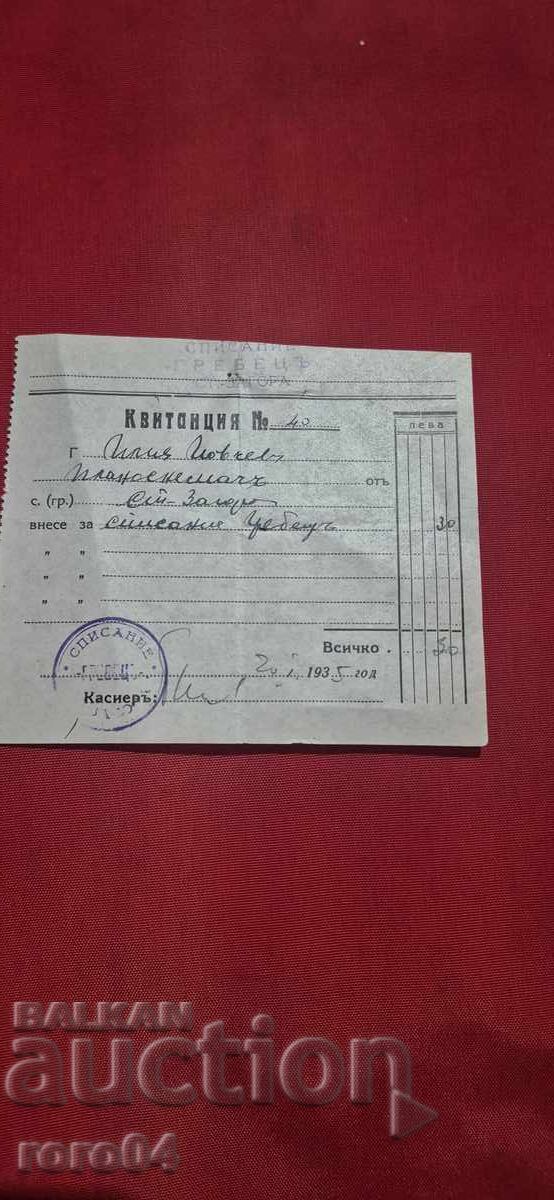 СПИСАНИЕ
ГРЕБЕЦЪ
ЗАГОРА
Квитанция № 40
лева
Г Илия Йовчев
отъ
с. (гр.) Ст-Загора
внесе за списание Гребецъ 30
" "
" "
" "
Всичко . 30
СПИСАНИЕ
ГРЕБЕЦЪ
1935 год
Касиеръ:
BALKAN
auction
roro04